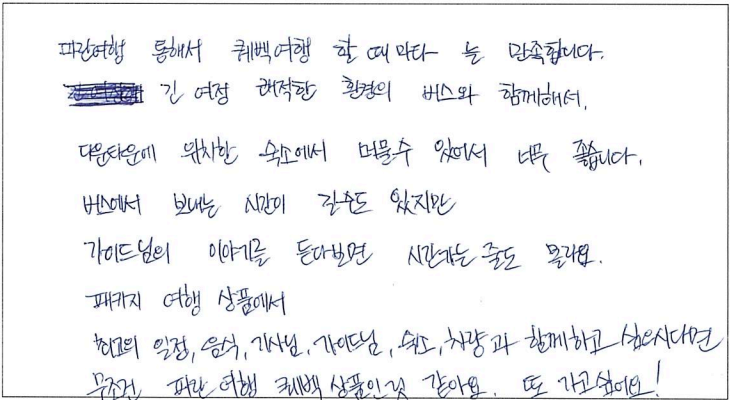 파란여행 통해서 퀘벡여행 할 때 마다 늘 만족합니다.
긴 여정 쾌적한 환경의 버스와 함께해서,
다운타운에 위치한 숙소에서 머물수 있어서 너무 좋습니다.
버스에서 보내는 시간이 길수도 있지만
가이드님의 이야기를 듣다보면 시간가는 줄도 몰라요.
패키지 여행 상품에서
최고의 일정, 음식, 기사님, 가이드님, 숙소, 차량과 함께하고 싶으시다면
무조건 파란여행 퀘벡 상품인것 같아요. 또 가고싶어요!